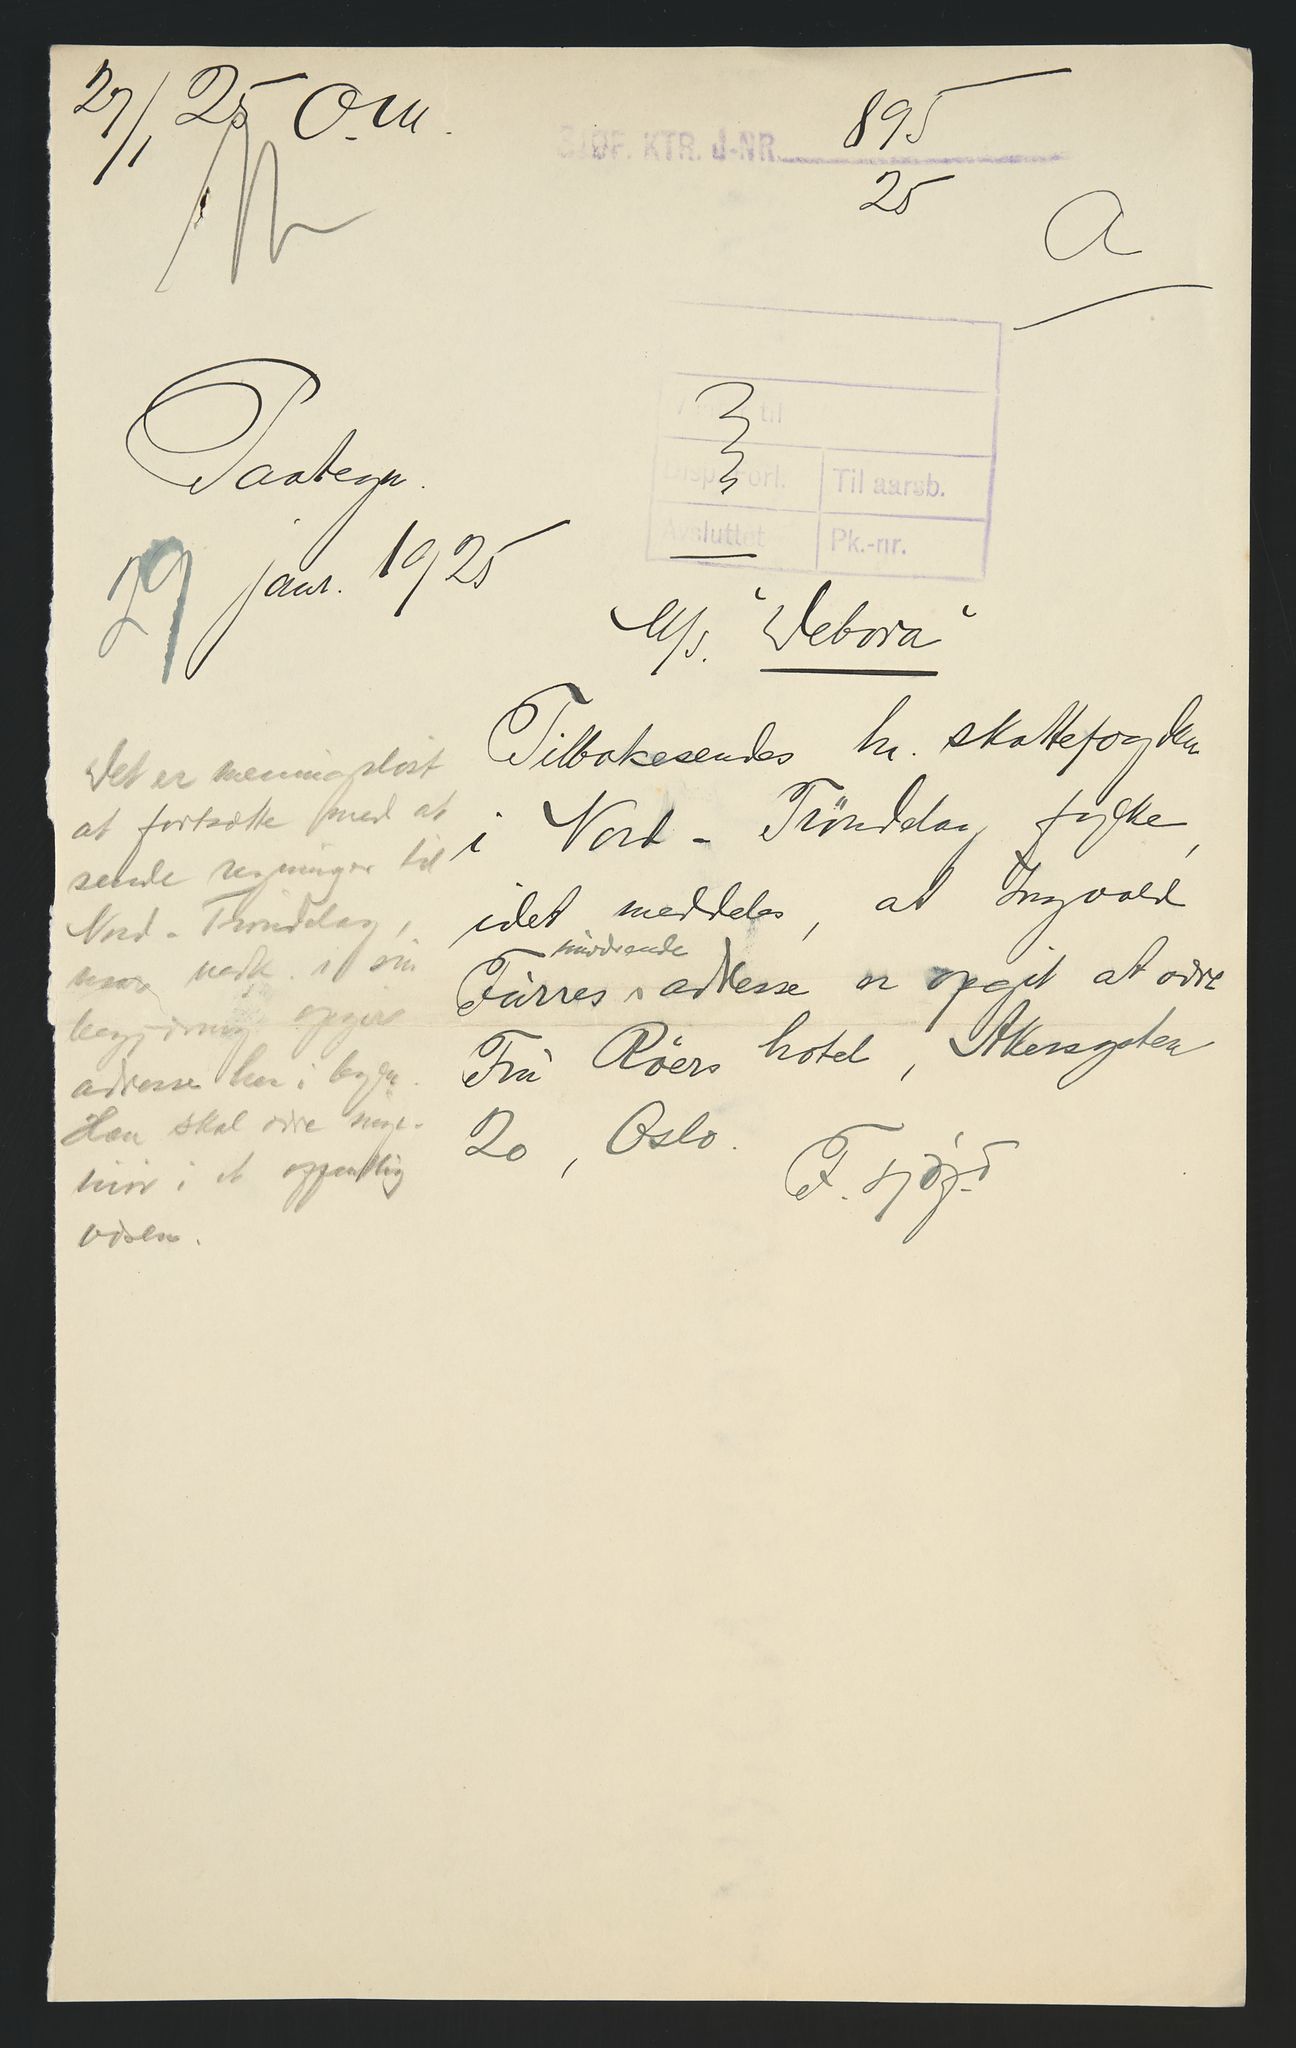 27/1 25 O.M.
SJØF. KTR. J-NR. 895
25
A
Paategn.
29 janr. 1925
til
Disp. Forl. Til aarsb.
Avsluttet Pk.-nr.
M/S. "Debora"
Tilbakesendes hr. skattefogden
i Nord-Trönddag fylke,
idet meddeles, at Ingvald
nuværende
Fürres adresse er opgit at være
Frü Röers hotel, Akersgaten
20, Oslo.
F. Sjøf.d
Det er meningsløst
at fortsætte med at
sende regninger til
Nord-Trønddag,
naar vedk. i sin
begjæring opgir
adresse her i byen.
Han skal være
i et offentlig
væsen.